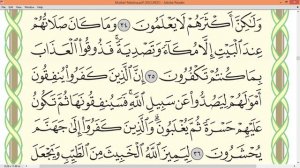 Mushaf Madinah.pdf (SECURED) - Adobe Reader
وَلَٰكِنَّ أَكْثَرَهُمْ لَا يَعْلَمُونَ ٣٤ وَمَا كَانَ صَلَاتُهُمْ
عِندَ ٱلْبَيْتِ إِلَّا مُكَآءً وَتَصْدِيَةً ۚ فَذُوقُوا۟ ٱلْعَذَابَ
بِمَا كُنتُمْ تَكْفُرُونَ ٣٥ إِنَّ ٱلَّذِينَ كَفَرُوا۟ يُنفِقُونَ
أَمْوَٰلَهُمْ لِيَصُدُّوا۟ عَن سَبِيلِ ٱللَّهِ ۚ فَسَيُنفِقُونَهَا ثُمَّ تَكُونُ
عَلَيْهِمْ حَسْرَةً ثُمَّ يُغْلَبُونَ ۗ وَٱلَّذِينَ كَفَرُوٓا۟ إِلَىٰ جَهَنَّمَ
يُحْشَرُونَ ٣٦ لِيَمِيزَ ٱللَّهُ ٱلْخَبِيثَ مِنَ ٱلطَّيِّبِ وَيَجْعَلَ